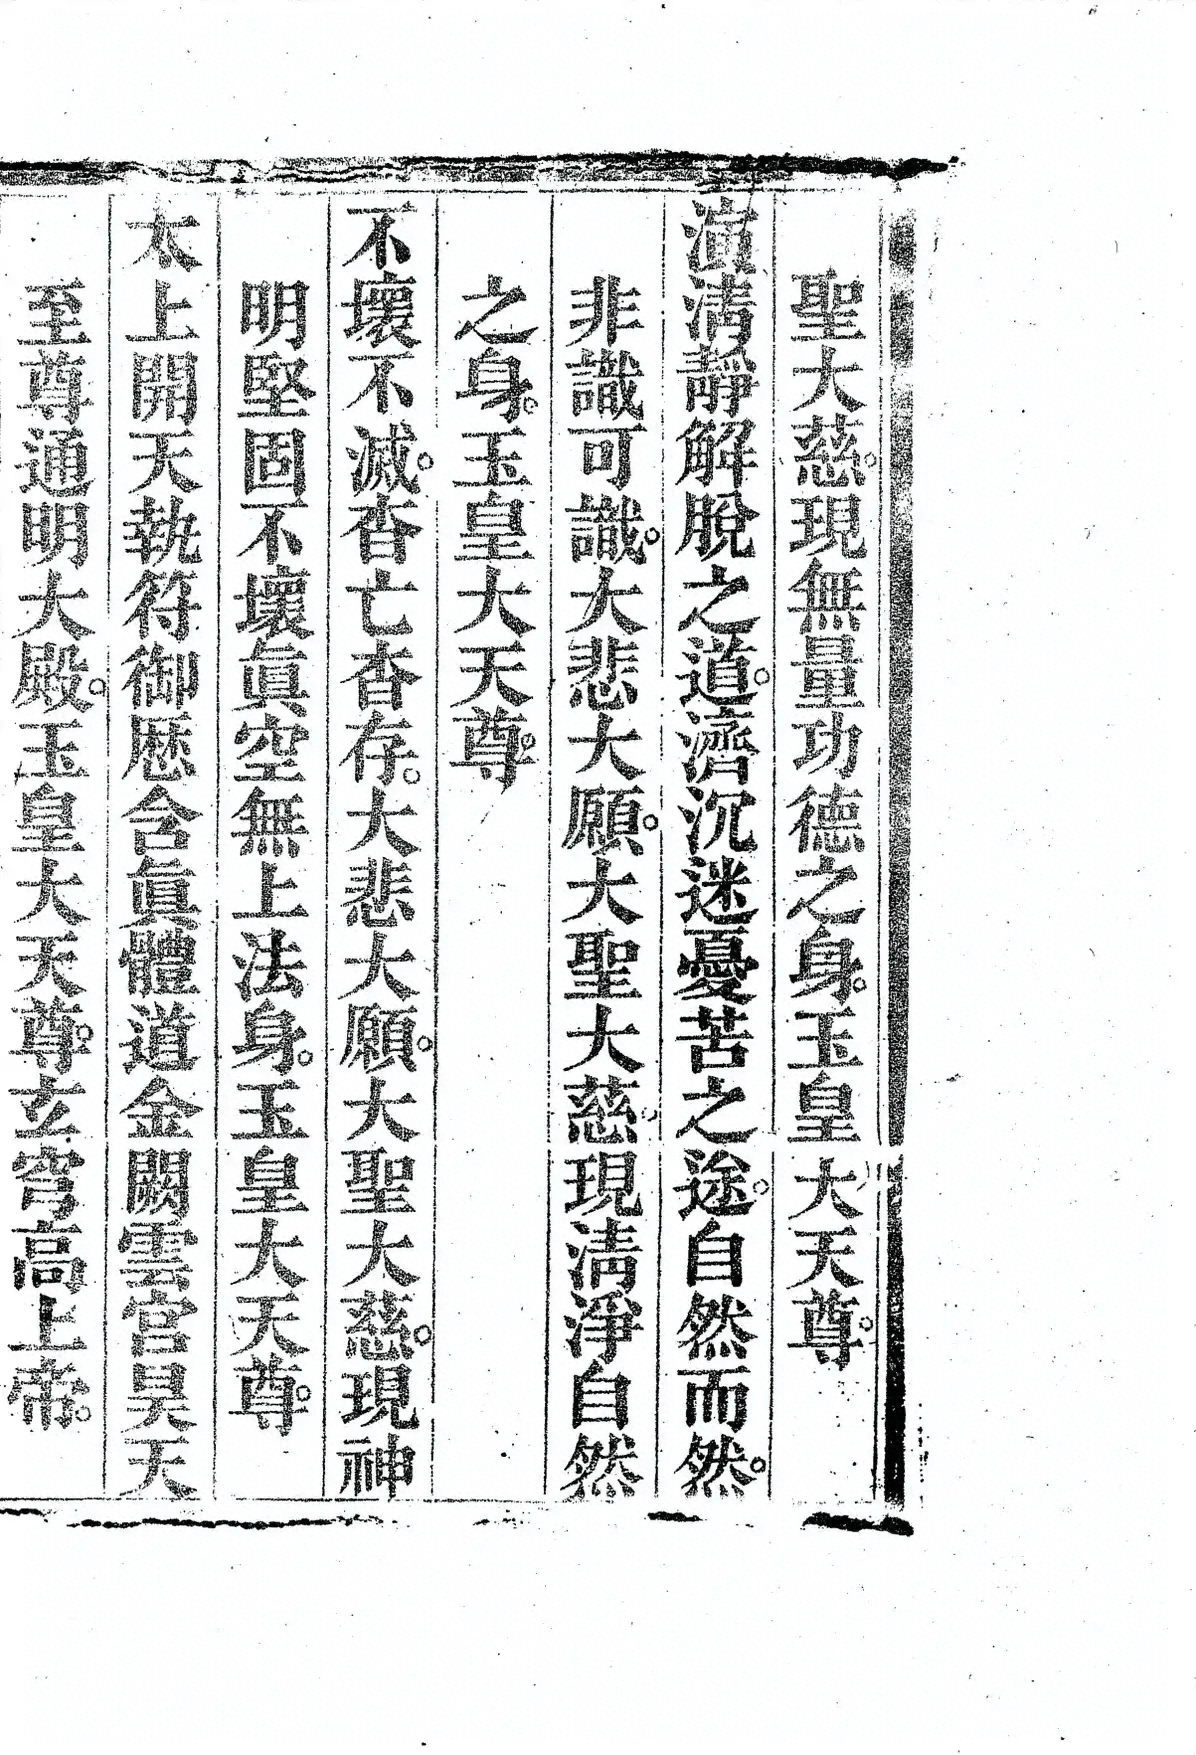 聖大慈。現無量功德之身。玉皇大天尊。
演淸靜解脫之道。濟沉迷憂苦之途。自然而然。
非識可識。大悲大願。大聖大慈。現淸淨自然
之身。玉皇大天尊。
不壞不滅。杳亡杳存。大悲大願。大聖大慈。現神
明堅固不壞眞空無上法身。玉皇大天尊。
太上開天執符御歷含眞體道金闕雲宮昊天
至尊通明大殿。玉皇大天尊。玄穹高上帝。